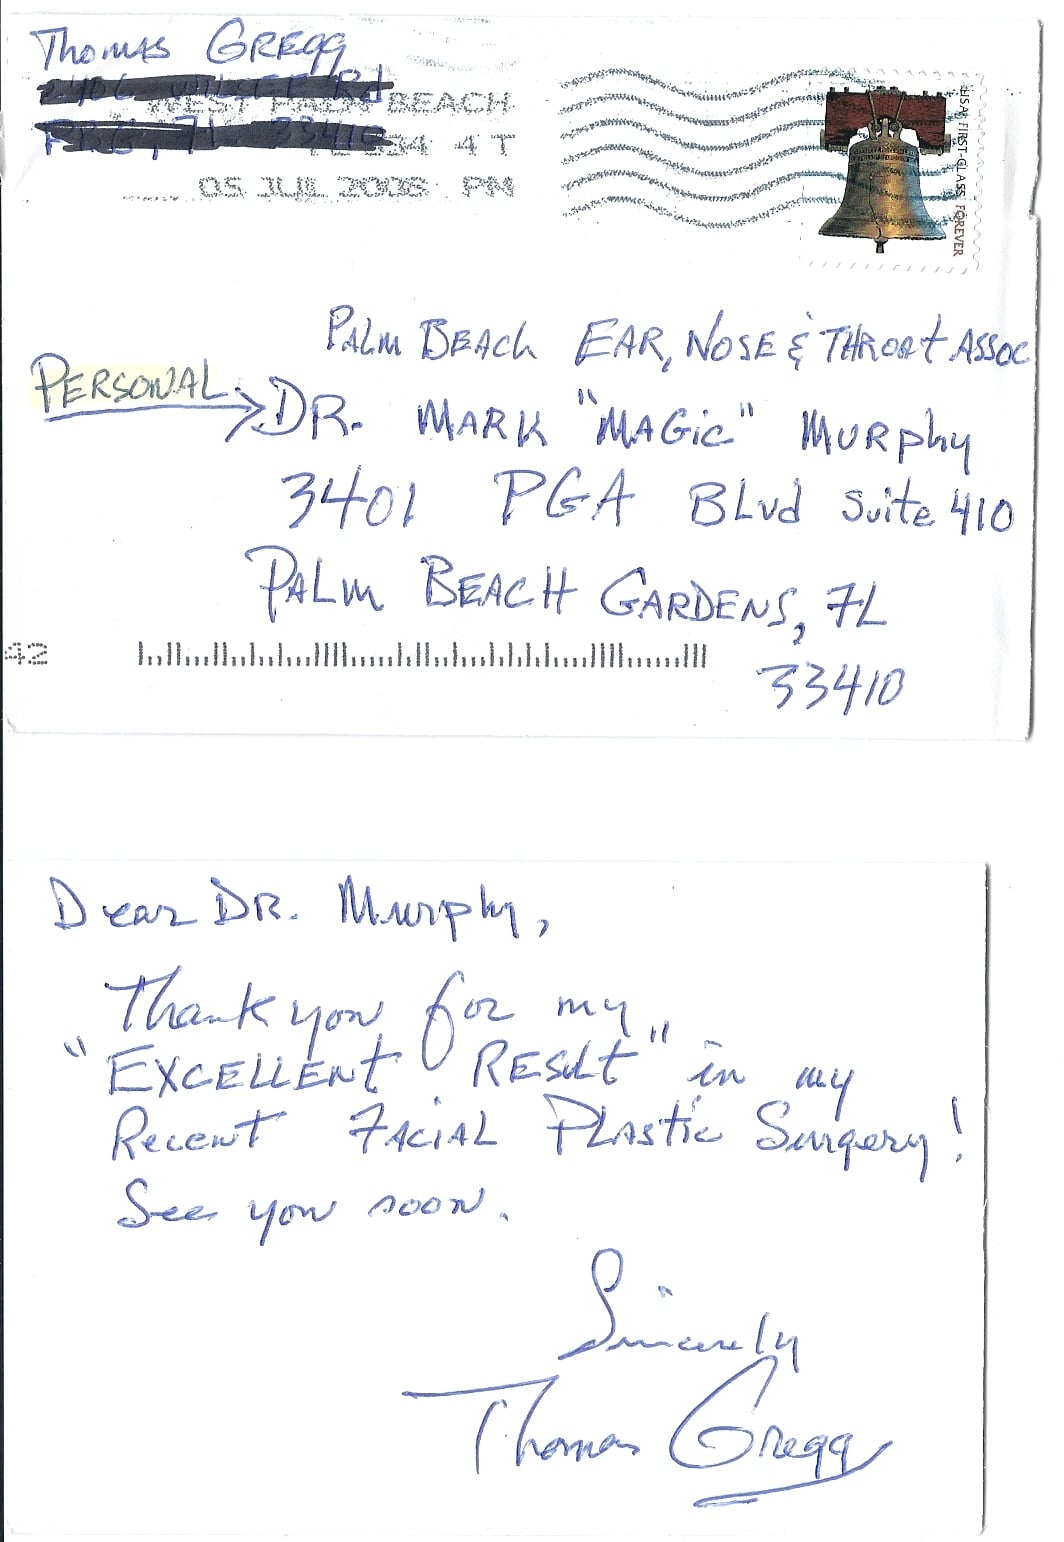 Thomas GREGG
WEST PALM BEACH
334 4 T
05 JUL 2008 PM
USA FIRST-CLASS FOREVER
PALM BEACH EAR, NOSE & THROAT ASSOC
PERSONAL
DR. MARK "MAGIC" MURPHY
3401 PGA BLVD Suite 410
PALM BEACH GARDENS, FL
33410
42
Dear DR. Murphy,
Thank you for my
"EXCELLENT RESULT" in my
Recent FACIAL PLASTIC Surgery!
See you soon.
Sincerely
Thomas Gregg